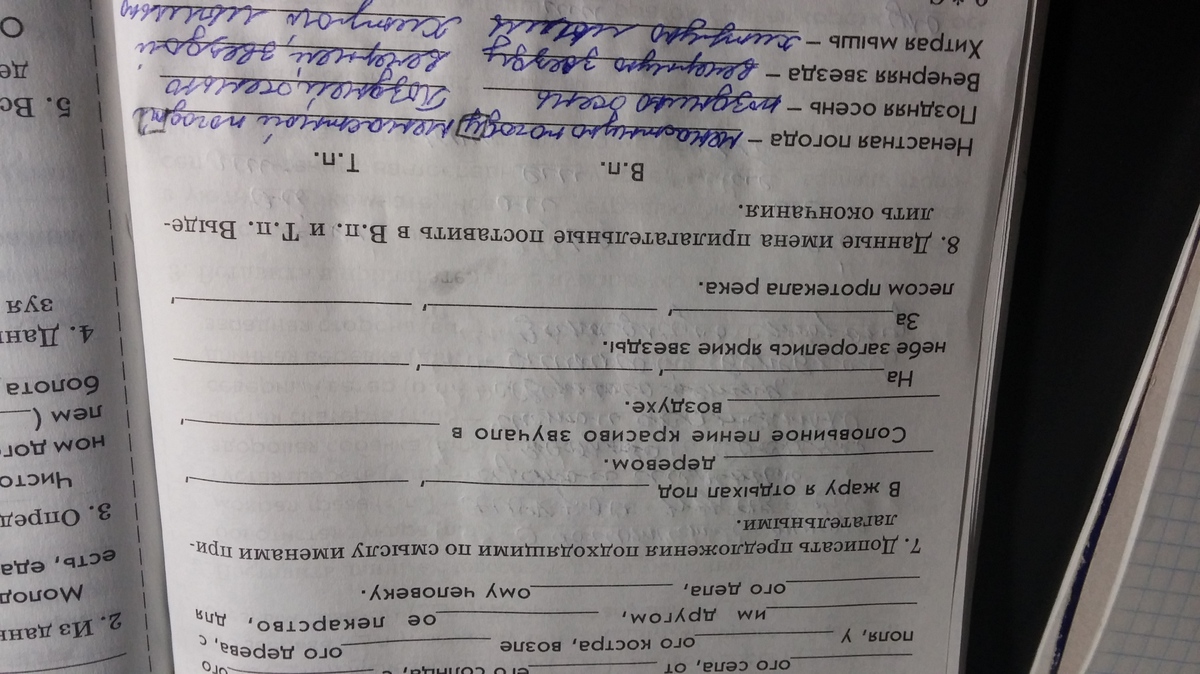 ого села, от ого солнца, с ого
поля, у ого костра, возле ого дерева, с
им другом, ое лекарство, для
ого дела, ому человеку.
7. Дописать предложения подходящими по смыслу именами при-
лагательными.
В жару я отдыхал под , ,
деревом.
Соловьиное пение красиво звучало в ,
воздухе.
На , ,
небе загорелись яркие звезды.
За , , ,
лесом протекала река.
8. Данные имена прилагательные поставить в В.п. и Т.п. Выде-
лить окончания.
В.п. Т.п.
Ненастная погода – ненастную погоду ненастной погодой
Поздняя осень – позднюю осень Поздней осенью
Вечерняя звезда – вечернюю звезду вечерней звездой
Хитрая мышь – хитрую мышь хитрой мышью
2. Из данн
Молод
есть, еда
3. Опред
Чисто
ном дог
лем (
болота,
4. Данн
зуя
5. Вс
де
О